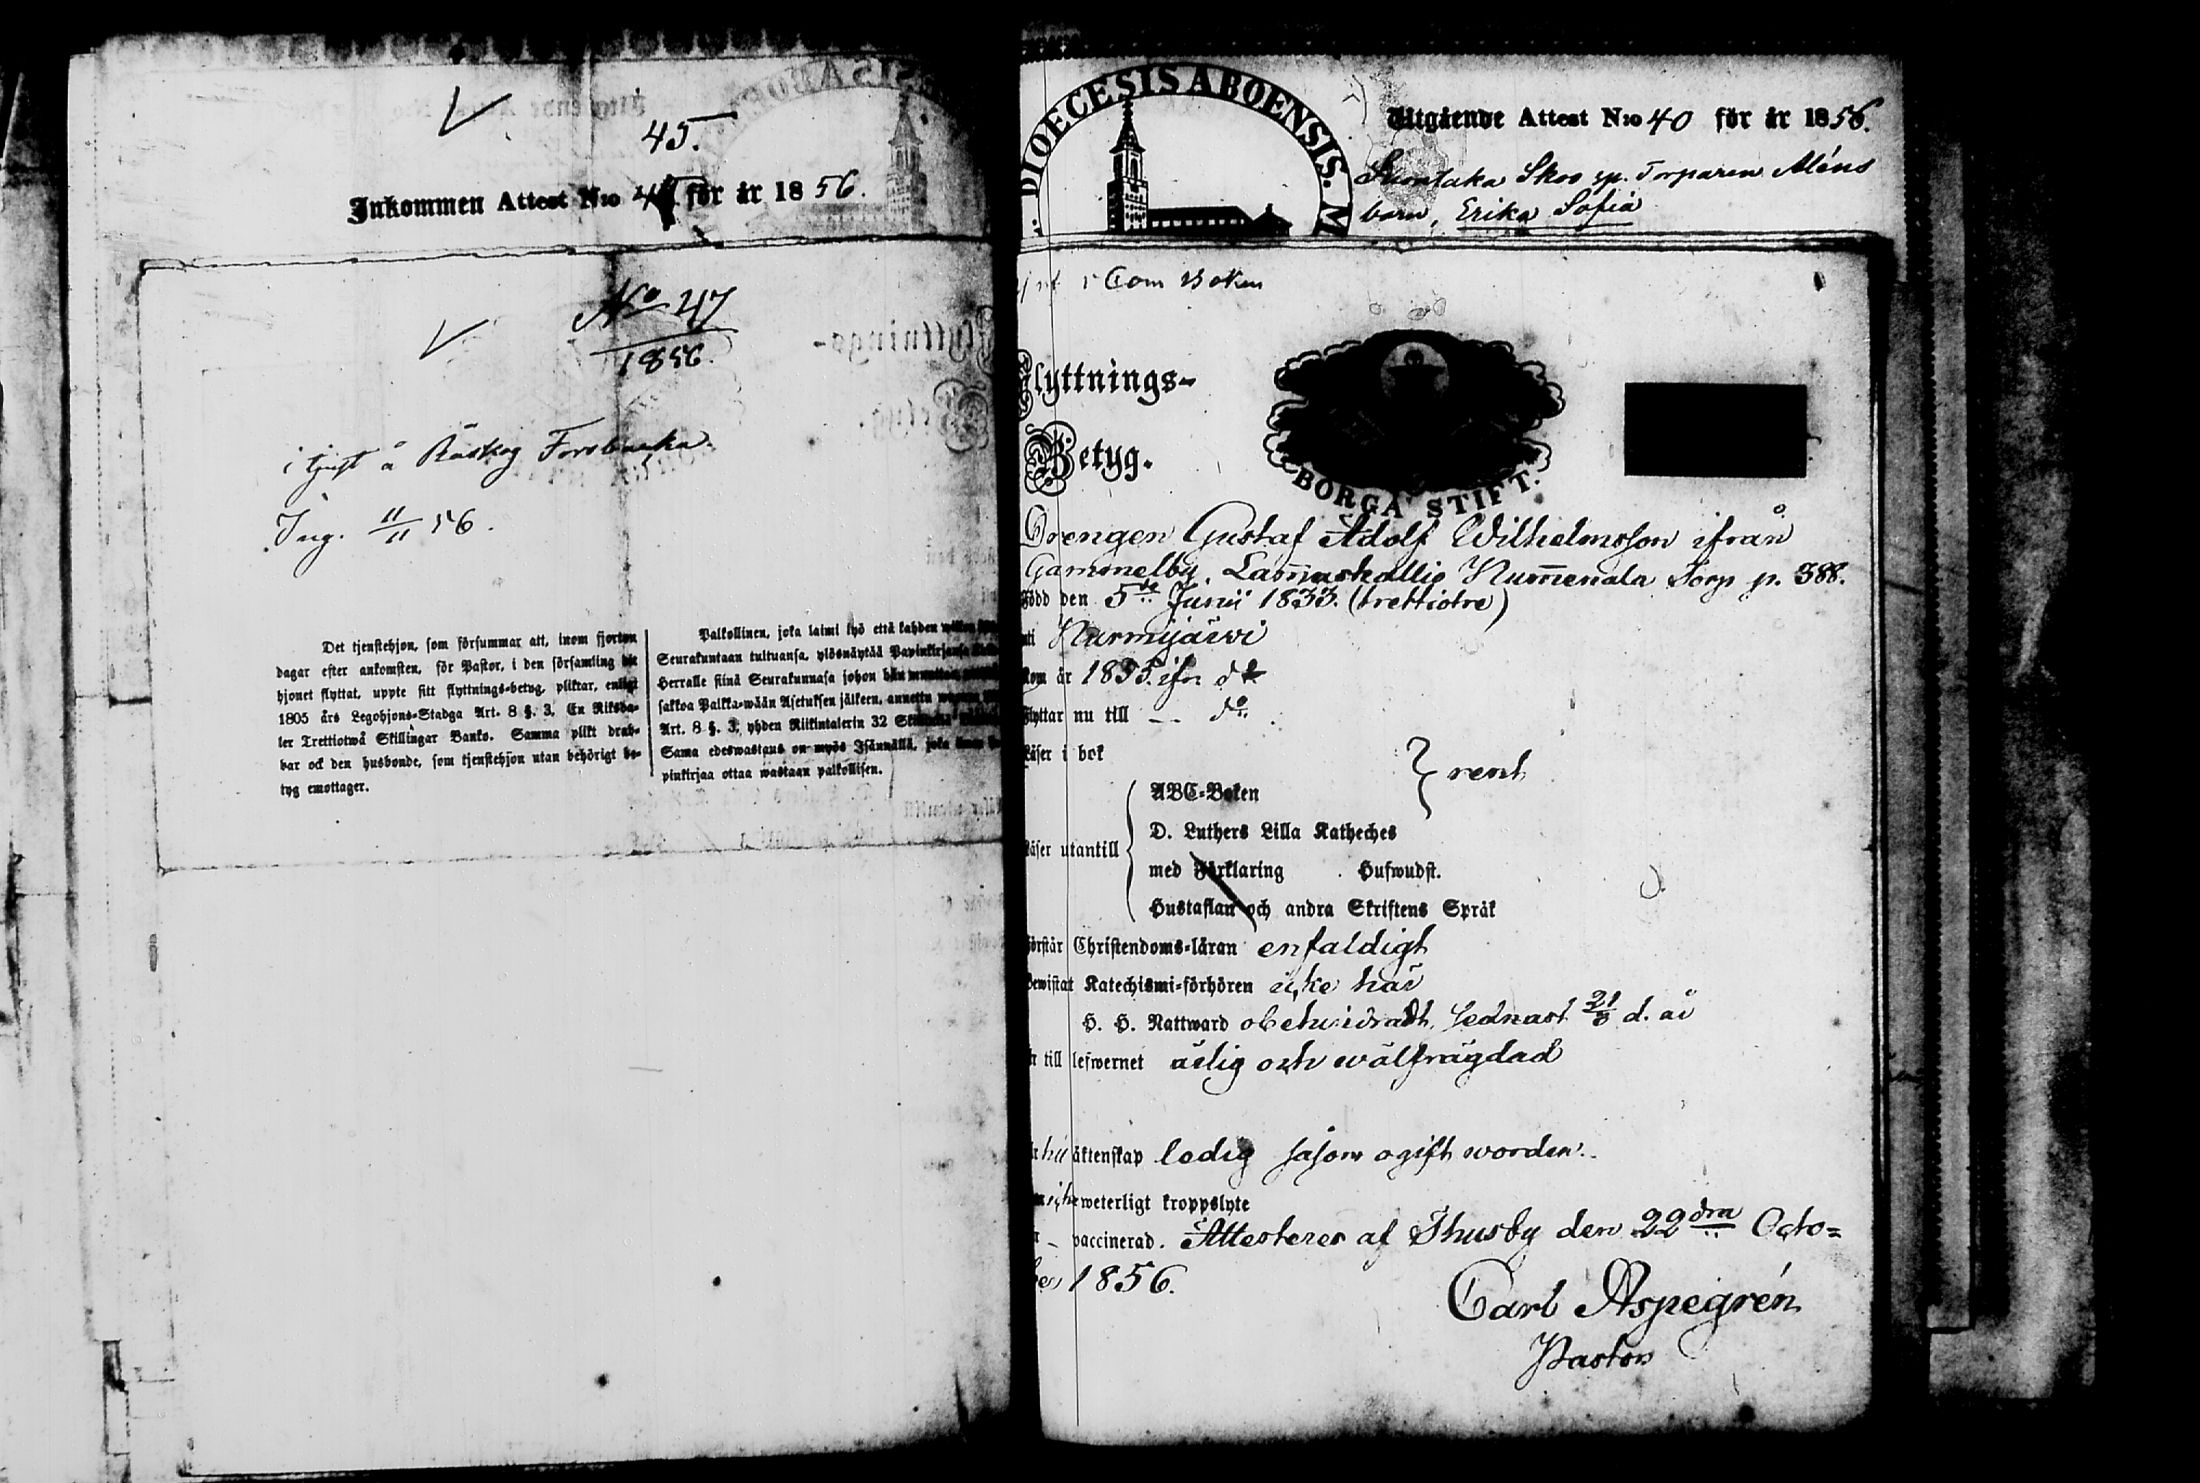 45.
Inkommen Attest N:o 45 för år 1856.
No 47
1856.
i tjenst å Råskog Forsbacka.
Ing. 11/11 56.
Det tjenstehjon, som försummar att, inom fjorton
dagar efter ankomsten, för Pastor, i den församling dit
hjonet flyttat, uppte sitt flyttnings-betyg, pliktar, enligt
1805 års Legohjons-Stadga Art. 8 §. 3, En Riksda-
ler Trettiotwå Skillingar Banko. Samma plikt drab-
bar ock den husbonde, som tjenstehjon utan behörigt be-
tyg emottager.
Palkollinen, joka laimi lyö että kahden
Seurakuntaan tultuansa, ylösnäytää Papinkirjansa
Herralle siinä Seurakunnasa johon hän
sakkoa Palkka-wään Asetuksen jälkeen, annettu
Art. 8 §. 3, yhden Riikintalerin 32
Sama edeswastaus on myös Isännällä, joka
pinkirjaa ottaa wastaan palkollisen.
DIOECESIS ABOENSIS. M
Utgående Attest N:o 40 för år 1856.
Skoo sp. Torparen Aléns
barn, Erika Sofia
i Com Boken
Flyttnings-
Betyg.
BORGÅ STIFT.
Drengen Gustaf Adolf Wilhelmsson ifrån
Gammelby, Lamaskallio Numenala Torp p. 388.
Född den 5te Junii 1833. (trettiotre)
uti Nurmijärvi
kom år 1835 ifr. do
Flyttar nu till — do
Läser i bok
rent
ABC-Boken
D. Luthers Lilla Katheches
Läser utantill
med Förklaring Hufwudst.
Hustaflan och andra Skriftens Språk
Förstår Christendoms-läran enfaldigt
Bewistat Katechismi-förhören icke här
H. H. Nattward obehindradt, sednast d. år
är till lefwernet ärlig och wälfrägdad
äktenskap ledig såsom ogift worden.
weterligt kroppslyte
vaccinerad. Attesteras af Thusby den 22dra Octo=
ber 1856.
Carl Aspegrén
Pastor